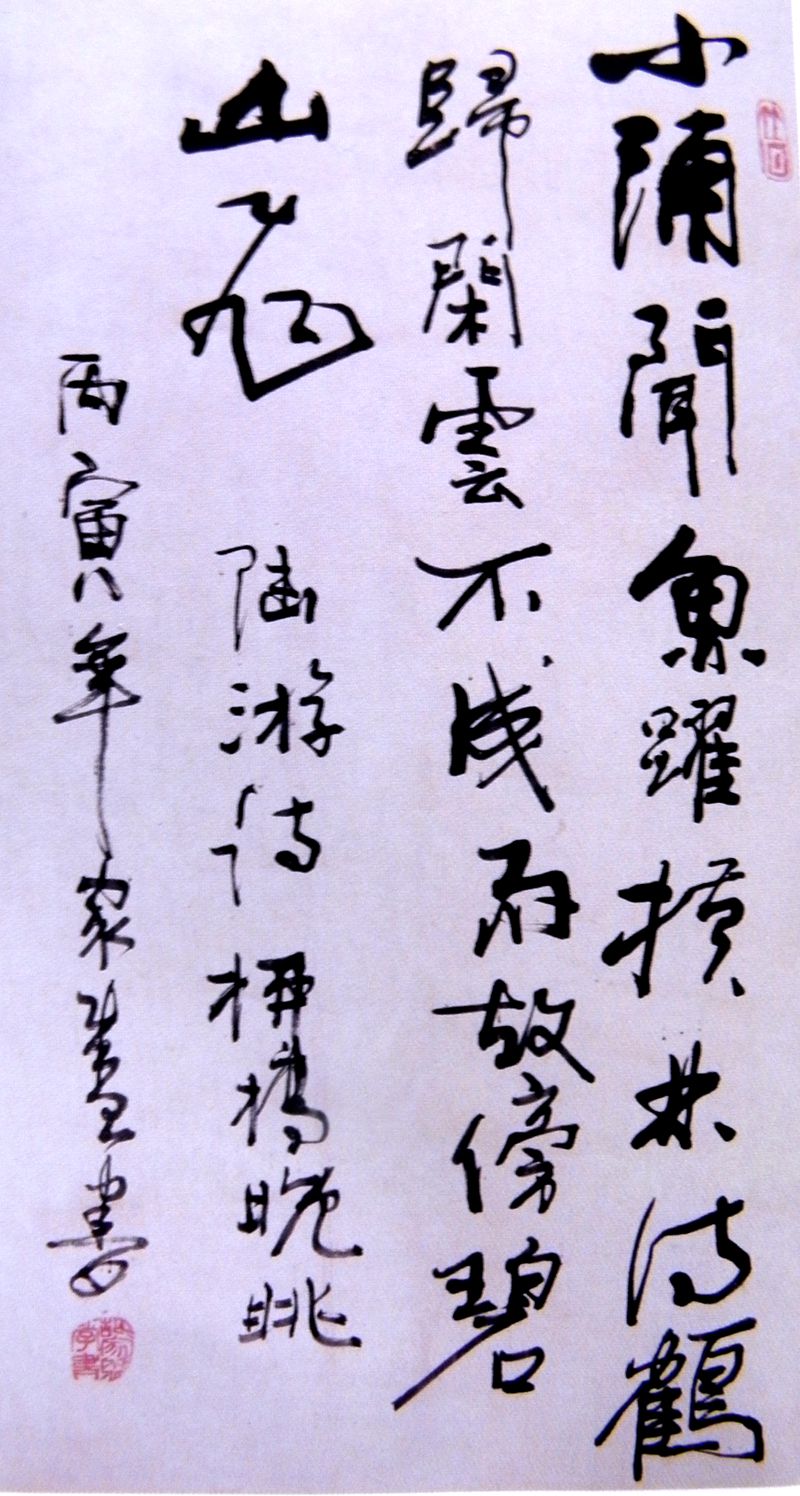 小浦聞魚躍横林待鶴
歸閑雲不成雨故傍碧
山飛 陸游詩柳橋晚眺
丙寅年家書